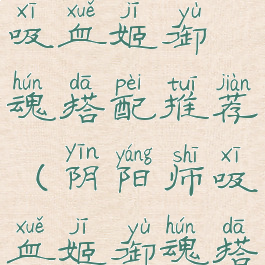 xī xuě jī yù
吸血姬御
hún dā pèi tuī jiàn
魂搭配推荐
yīn yáng shī xī
（阴阳师吸
xuě jī yù hún dā
血姬御魂搭